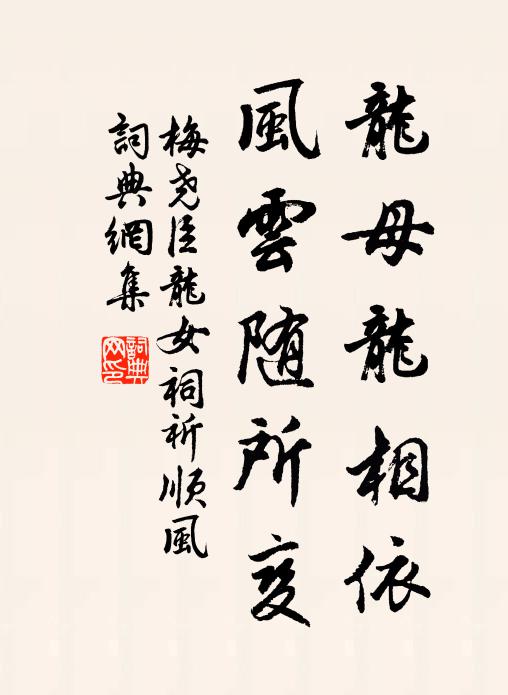 龍母龍相依
風雲随所變
梅尧臣龍女祠祈順風
詞典網集
詞典網印